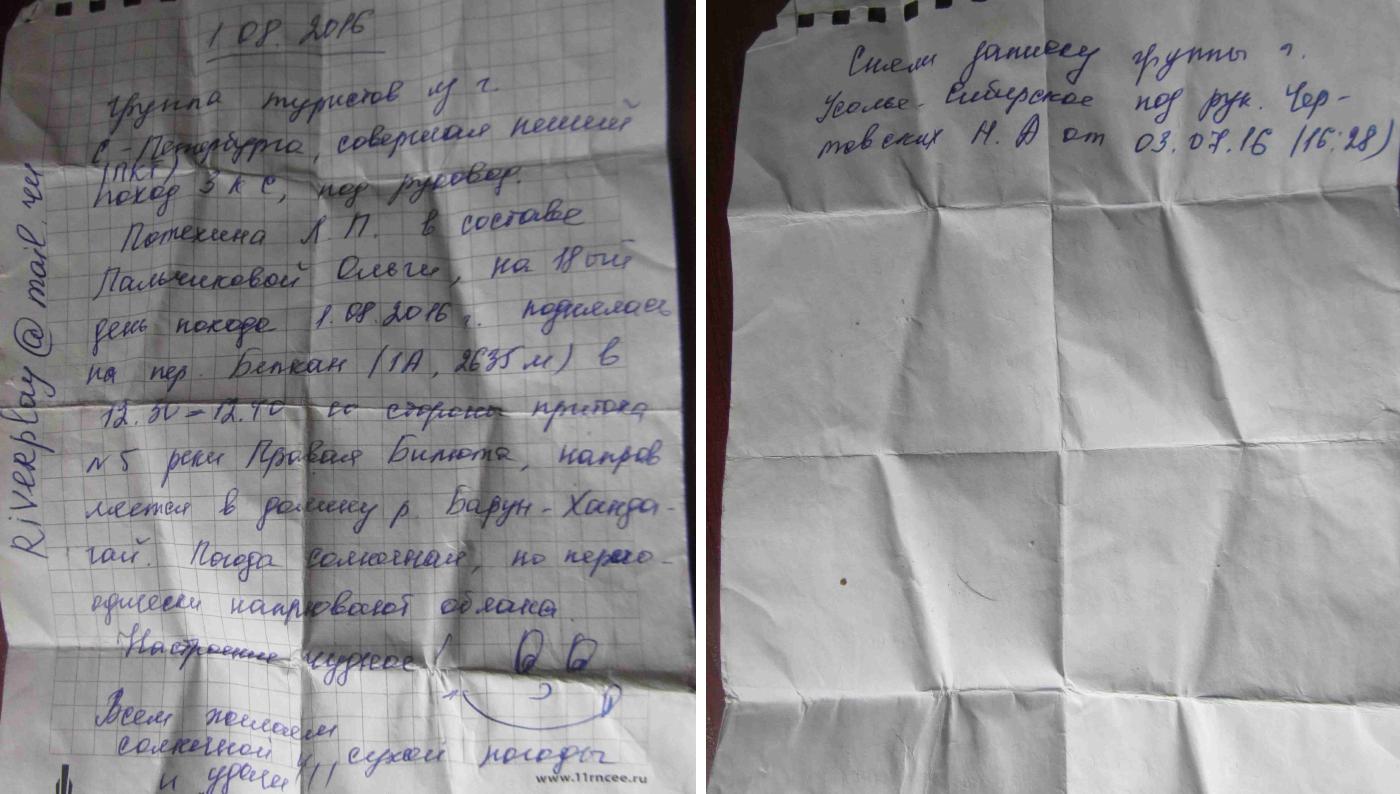 1 08. 2016
группа туристов из г.
С-Петербурга, совершая пеший
(ПКТ)
поход 3 к с, под руковод.
Потехина Л.П. в составе
Пальчиковой Ольги, на 18ый
день похода 1.08.2016 г. поднялась
на пер. (1А, 2635 м) в
12.30-12.40 со стороны притока
№5 реки Правая Билюта, направ
ляется в долину р. Барун-Ханда-
гай. Погода солнечная, но перио-
одически облака.
Настроение чудное!
Всем желаем
солнечной и сухой погоды
и удачи!!!
Riverplay@mail.ru
www.11rncee.ru
Сняли записку группы г.
Усолье-Сибирское под рук. Чер-
товских Н. А от 03.07.16 (16:28)